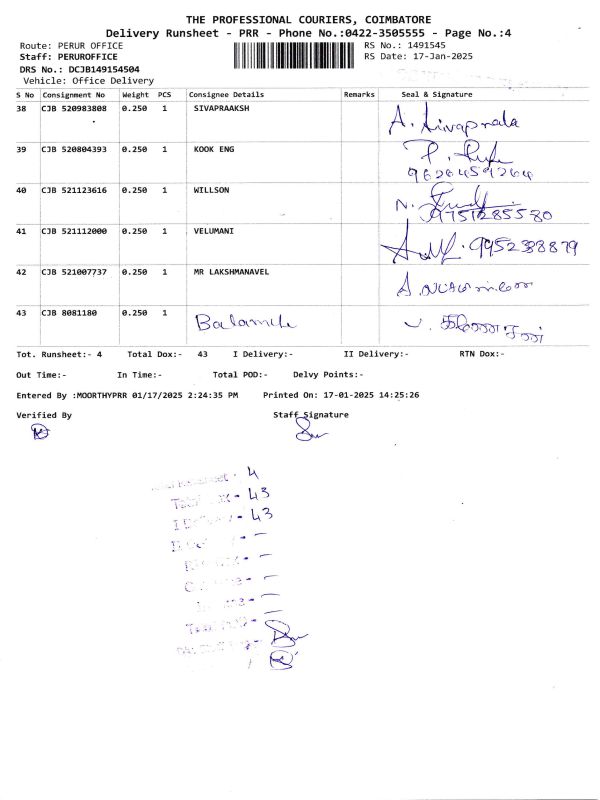 THE PROFESSIONAL COURIERS, COIMBATORE
Delivery Runsheet - PRR - Phone No.:0422-3505555 - Page No.:4
Route: PERUR OFFICE RS No.: 1491545
Staff: PERUROFFICE RS Date: 17-Jan-2025
DRS No.: DCJB149154504
Vehicle: Office Delivery
S No Consignment No Weight PCS Consignee Details Remarks Seal & Signature
38 CJB 520983808 0.250 1 SIVAPRAAKSH A.
39 CJB 520804393 0.250 1 KOOK ENG P.
40 CJB 521123616 0.250 1 WILLSON N.
9751285580
41 CJB 521112000 0.250 1 VELUMANI 9952388879
42 CJB 521007737 0.250 1 MR LAKSHMANAVEL
43 CJB 8081180 0.250 1
Tot. Runsheet:- 4 Total Dox:- 43 I Delivery:- II Delivery:- RTN Dox:-
Out Time:- In Time:- Total POD:- Delvy Points:-
Entered By :MOORTHYPRR 01/17/2025 2:24:35 PM Printed On: 17-01-2025 14:25:26
Verified By Staff Signature
4
43
43